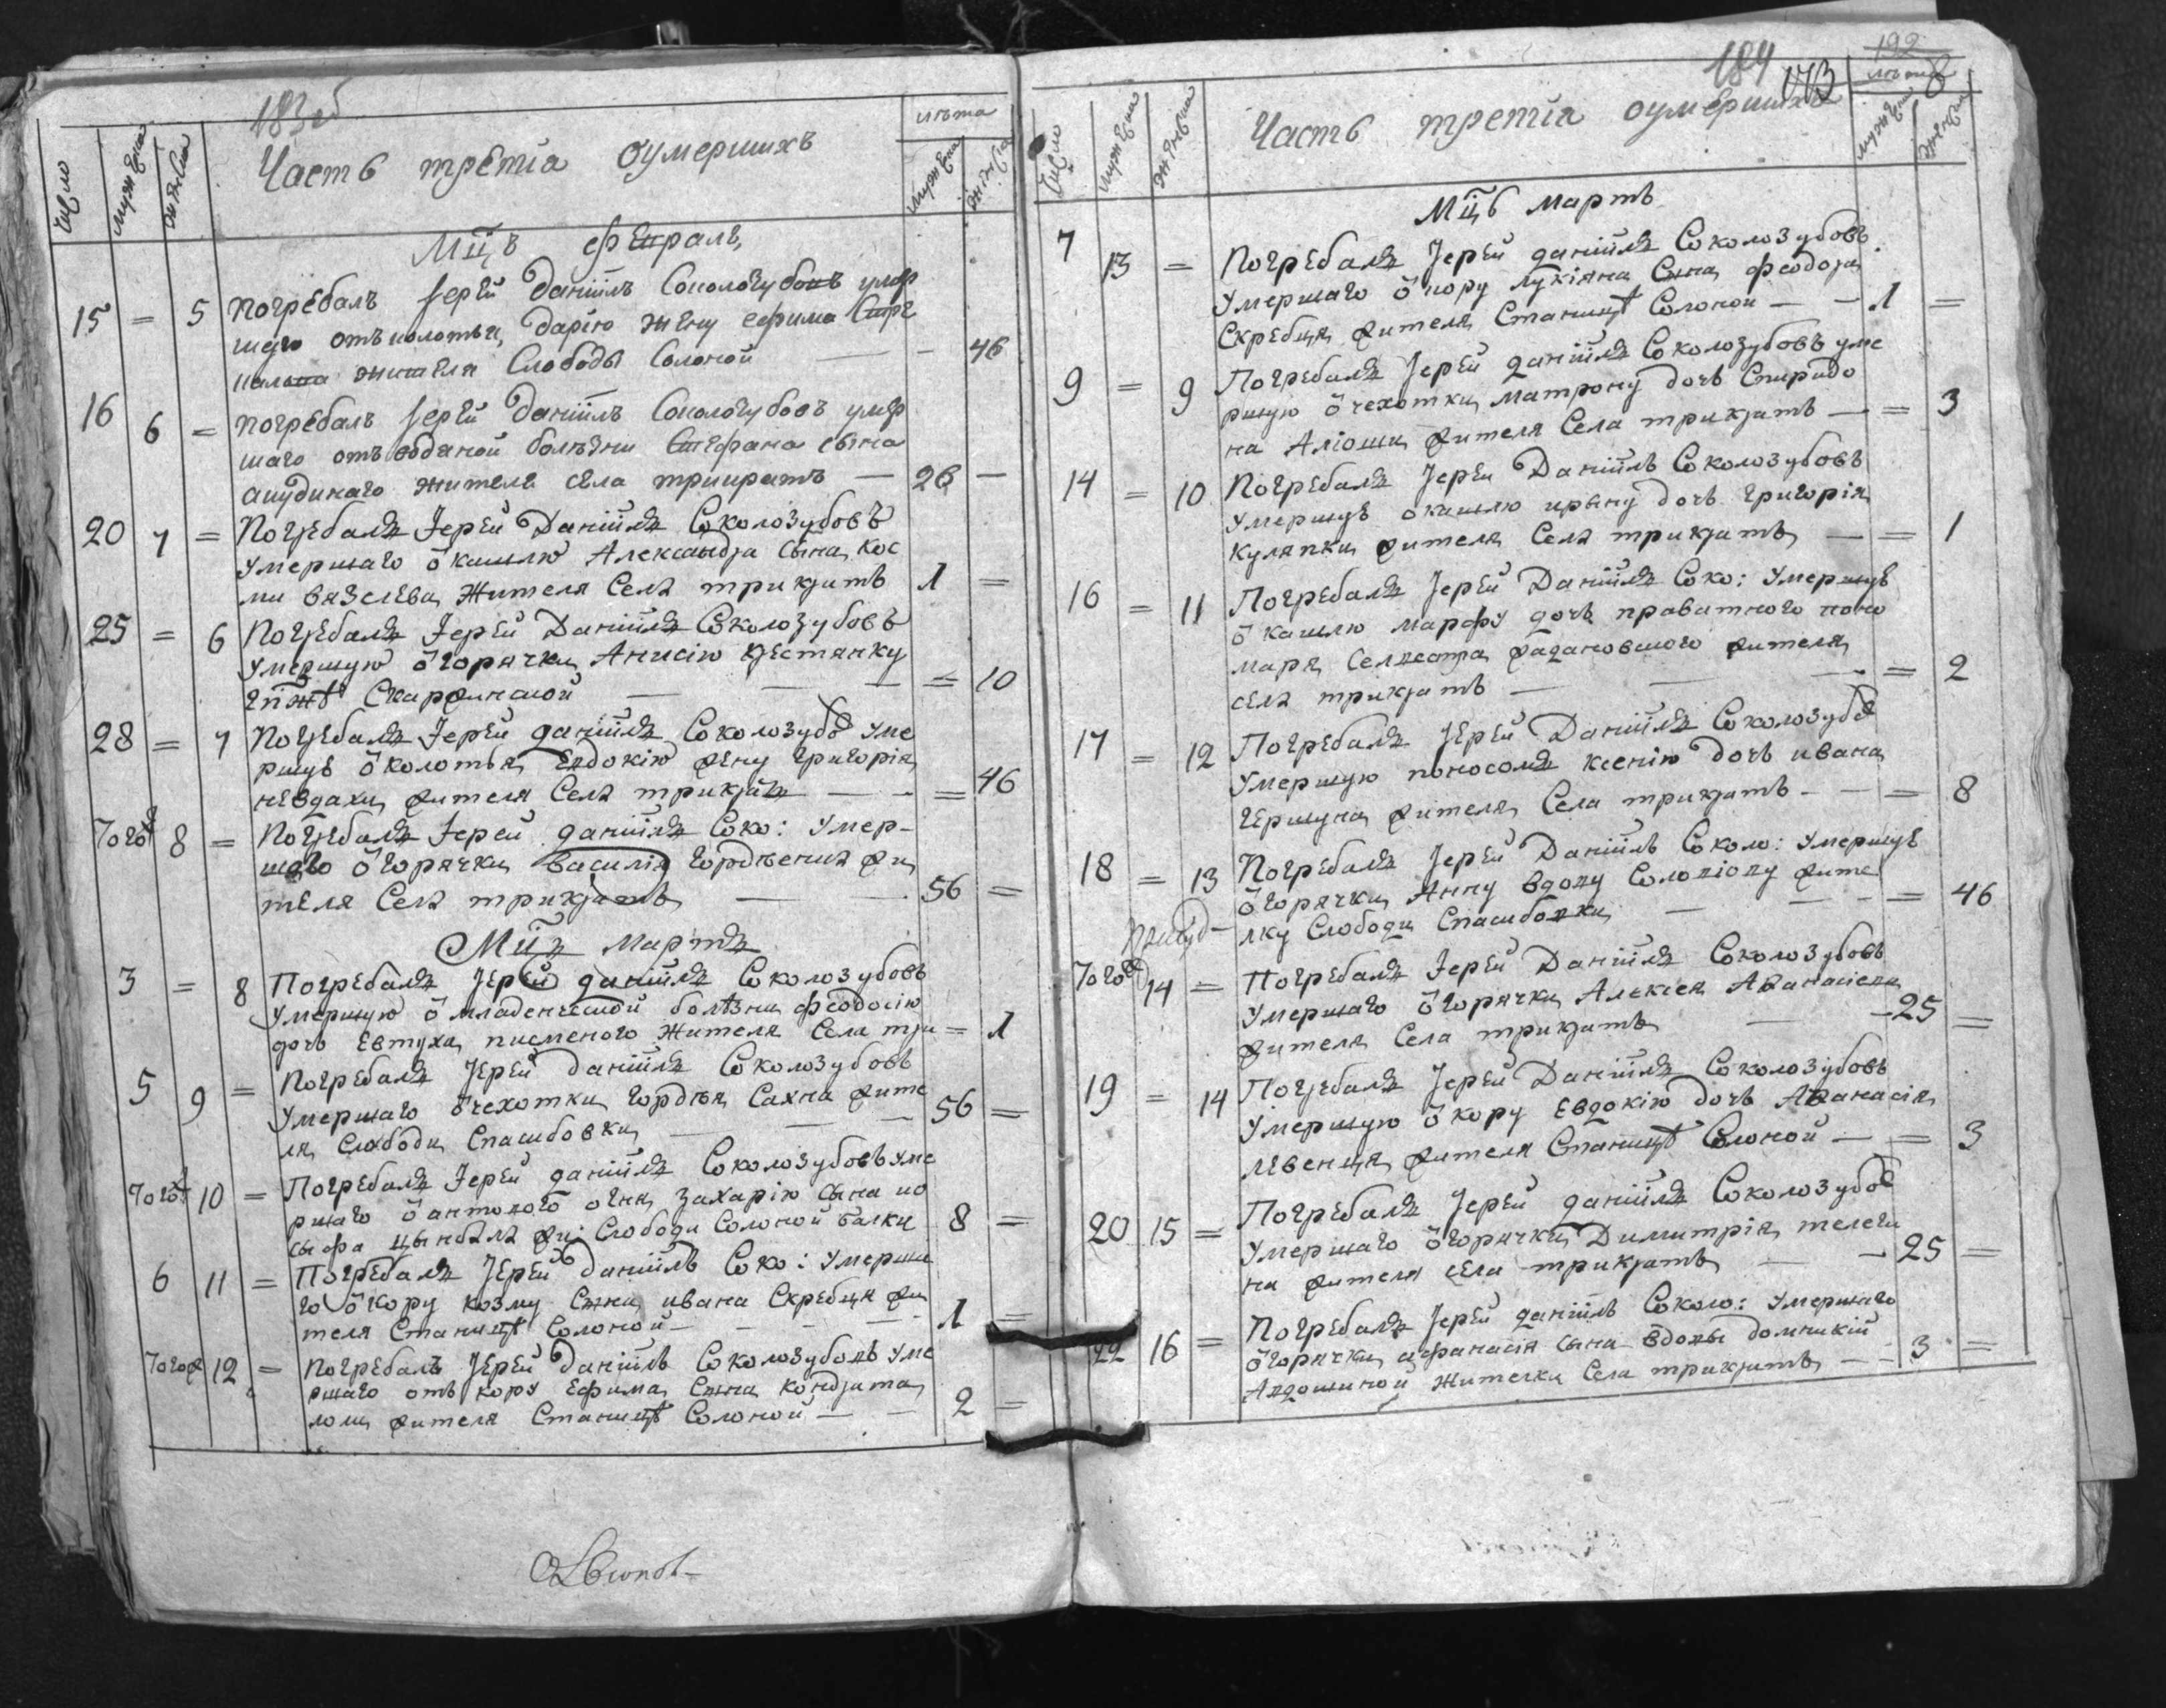 183 об
Часть третіа оумершихъ
лѣта
Число
мужеска
женска
мужеска
женска
Мцъ февраль
15 = 5 Погребалъ Іерей Даніилъ Сокологубовъ умер
шую отъ колотьи, дарію жену ефима
жителя Слободы Солоной — — 46
16 6 = погребалъ Іерей Даніилъ Сокологубовъ умер
шаго отъ болѣзни Стефана сына
жителя села трикратъ — 26 —
20 7 = Погребалъ Іерей Даніилъ Соколозубовъ
умершаго ѿ кашлю Александра сына кос
ми вязслева жителя Села трикратъ 1 =
25 = 6 Погребалъ Іерей Даніилъ Соколозубовъ
умершую ѿ горячки Анисію крестянку
Скаржинской — — — = 10
28 = 7 Погребалъ Іерей даніилъ Соколозубов уме
ршую ѿ колотья Евдокію жену григорія
невдахи жителя Села трикратъ — - = 46
Того 8 = Погребалъ Іерей даніилъ Соко: умер-
шаго ѿ горячки василія гордѣенка жи
теля Села трикратъ — - 56 =
Мцъ Мартъ
3 = 8 Погребалъ Іерей даніилъ Соколозубовъ
умершую ѿ младенческой болѣзни феодосію
дочь Евтуха писменого жителя Села три = 1
5 9 = Погребалъ Іерей даніилъ Соколозубовъ
умершаго ѿ чехотки гордѣя Сахна жите
ля Слободи Спасибовки — — — 56 =
Того 10 = Погребалъ Іерей даніилъ Соколозубовъ уме
ршаго ѿ антонового огня захарію сына ио
сифа цымбала жи: Слободи Солоной балки 8 =
6 11 = Погребалъ Іерей даніилъ Соко: умерша
го ѿ кору козму Сына ивана Скребця жи
теля Станицѣ Солоной — - - — - 1 =
Того 12 = Погребалъ Іерей даніилъ Соколозубовъ уме
ршаго отъ кору Ефима Сына кондрата
лоши жителя Станицѣ Солоной — — 2 =
184
192
Часть третіа оумершихъ
лѣта
Число
мужеска
женска
мужеска
женска
Мцъ мартъ
7 13 = Погребалъ Іерей даніилъ Соколозубовъ
умершаго ѿ кору лукіяна Сына феодора
Скребця жителя Станицѣ Солоной — — 1 =
9 = 9 Погребалъ Іерей даніилъ Соколозубовъ уме
ршую ѿ чехотки матрону дочь Спиридо
на Аліоши жителя Села трикратъ — = 3
14 = 10 Погребалъ Іерей Даніилъ Соколозубовъ
умершую ѿ кашлю ирыну дочь григорія
куляпки жителя Села трикратъ — = 1
16 = 11 Погребалъ Іерей Даніилъ Соко: умершую
ѿ кашлю марфу дочь приватного поно
маря Селвестра жителя
села трикратъ — — - = 2
17 = 12 Погребалъ Іерей Даніилъ Соколозубов
умершую поносомъ ксенію дочь ивана
чершуна жителя Села трикратъ - - = 8
18 = 13 Погребалъ Іерей Даніилъ Соколо: умершую
ѿ горячки Анну вдову Соловіову жите
лку Слободи Спасибовки — — - = 46
Того 14 = Погребалъ Іерей Даніилъ Соколозубовъ
умершаго ѿ горячки Алексея Аѳанасіева
жителя Села трикратъ — - 25 =
19 = 14 Погребалъ Іерей Даніилъ Соколозубовъ
умершую ѿ кору Евдокію дочь Аѳанасія
левенця жителя Станицѣ Солоной — = 3
20 15 = Погребалъ Іерей даніилъ Соколозубов
умершаго ѿ горячки Димитрія телеги
на жителя села трикратъ — - 25 =
22 16 = Погребалъ Іерей даніилъ Соколо: умершаго
ѿ горячки афанасія сына вдовы домникіи
Авдошиной жителки Села трикратъ — - 3 =